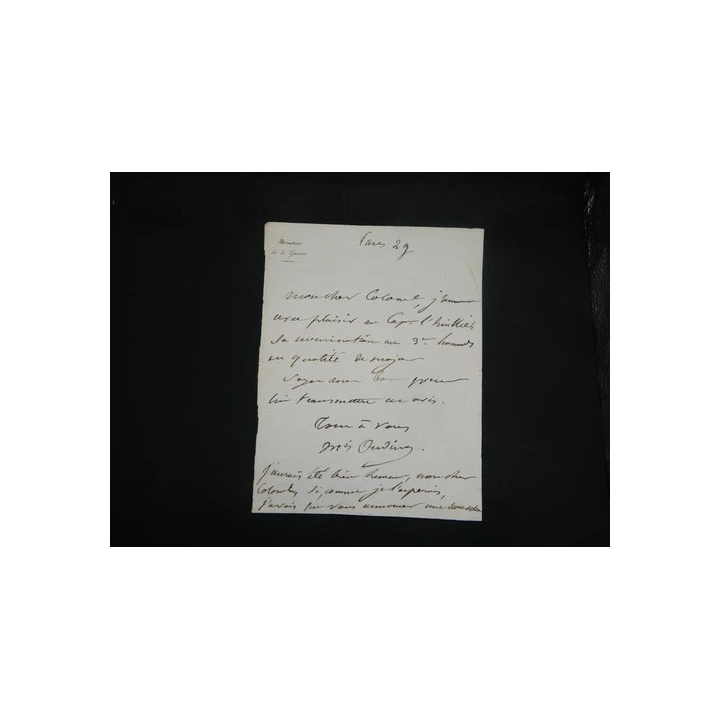 Ministère
de la Guerre
Paris 29
mon cher Colonel, j'annonce
avec plaisir au Cape l'huillier
sa nomination au 3e hussards
en qualité de major
Soyez assez bon pour
lui transmettre cet avis.
Tout à vous
Oudinot
J'aurais été bien heureux, mon cher
Colonel, si, comme je l'espérais,
j'avais pu vous annoncer une